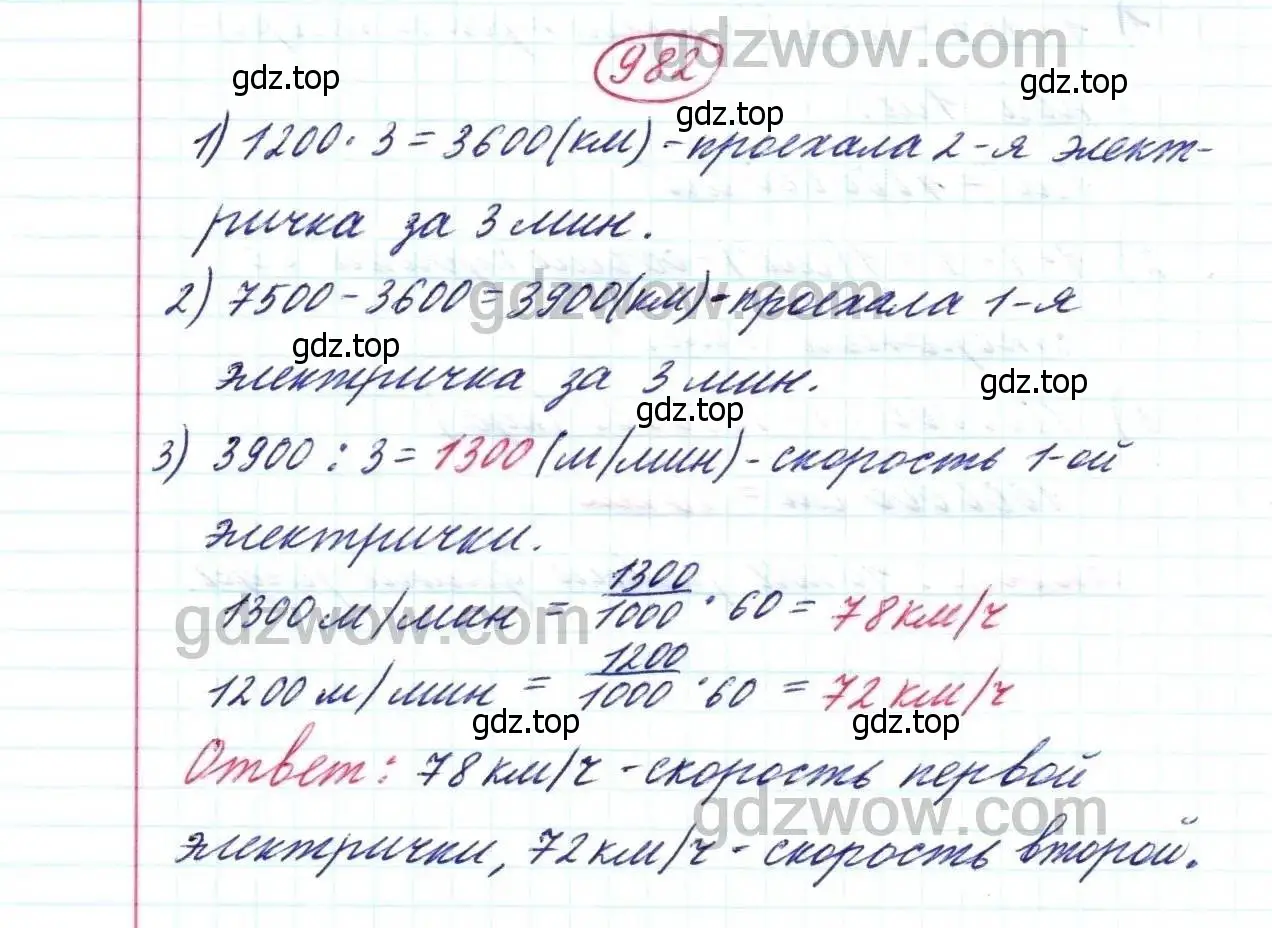 gdzwow.com
982
gdz.top
gdz.top
gdz.top
1) 1200 · 3 = 3600 (км) - проехала 2-я элект-
ричка за 3 мин.
2) 7500 - 3600 = 3900 (км) - проехала 1-я
gdzwow.com
gdz.top
электричка за 3 мин.
gdz.top
gdz.top
3) 3900 : 3 = 1300 (м/мин) - скорость 1-ой
электрички.
1300 м/мин = 1300/1000 · 60 = 78 км/ч
gdzwow.com
1200 м/мин = 1200/1000 · 60 = 72 км/ч
gdz.top
gdz.top
Ответ: 78 км/ч - скорость первой
gdzwow.com
электрички, 72 км/ч - скорость второй.